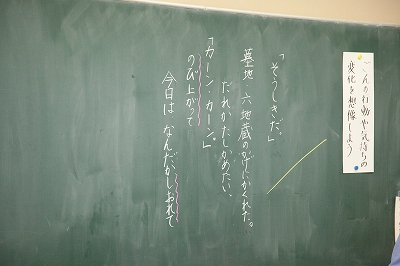 ごんの行動や気持ちの
変化を想像しよう
「そうしきだ。」
墓地・六地蔵のかげにかくれた。
だれかたしかめたい、
「カーン、カーン。」
のび上がって
今日は、なんだかしおれて